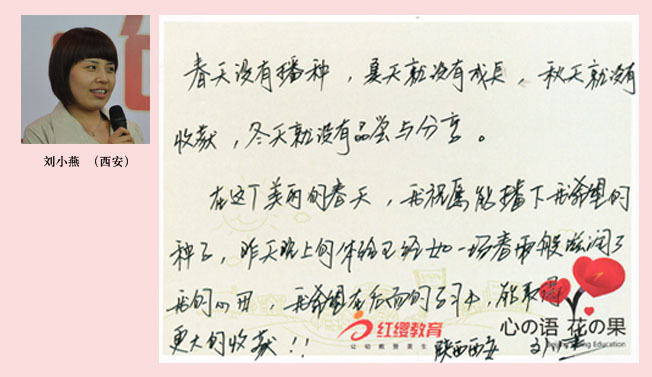 刘小燕 （西安）
春天没有播种，夏天就没有成长，秋天就没有
收获，冬天就没有品尝与分享。
在这个美丽的春天，我祝愿能播下我希望的
种子，昨天晚上的体验已经如一场春雨般滋润了
我的心田，我希望在后面的学习中，能取得
更大的收获！！
陕西西安 刘小燕
红缨教育
让幼教更美生
心の语 花の果
Education